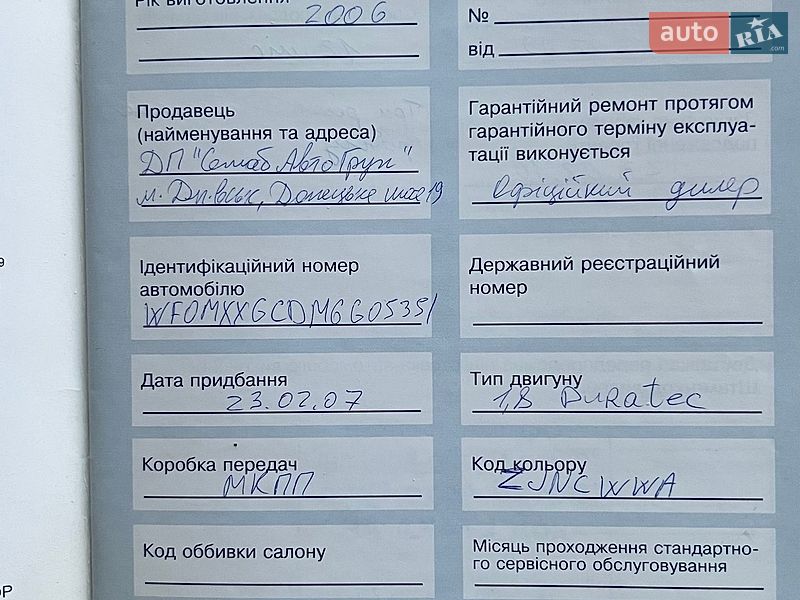 Рік виготовлення
2006
№
від
auto RIA .com
Продавець
(найменування та адреса)
ДП "Самаб АвтоГруп"
м. Дп.вськ, Донецьке шосе 19
Гарантійний ремонт протягом
гарантійного терміну експлуа-
тації виконується
Офіційний дилер
Ідентифікаційний номер
автомобілю
WF0MXXGCDM6G05351
Державний реєстраційний
номер
Дата придбання
23.02.07
Тип двигуну
1,8 Duratec
Коробка передач
МКПП
Код кольору
ZJNCWWA
Код оббивки салону
Місяць проходження стандартно-
го сервісного обслуговування